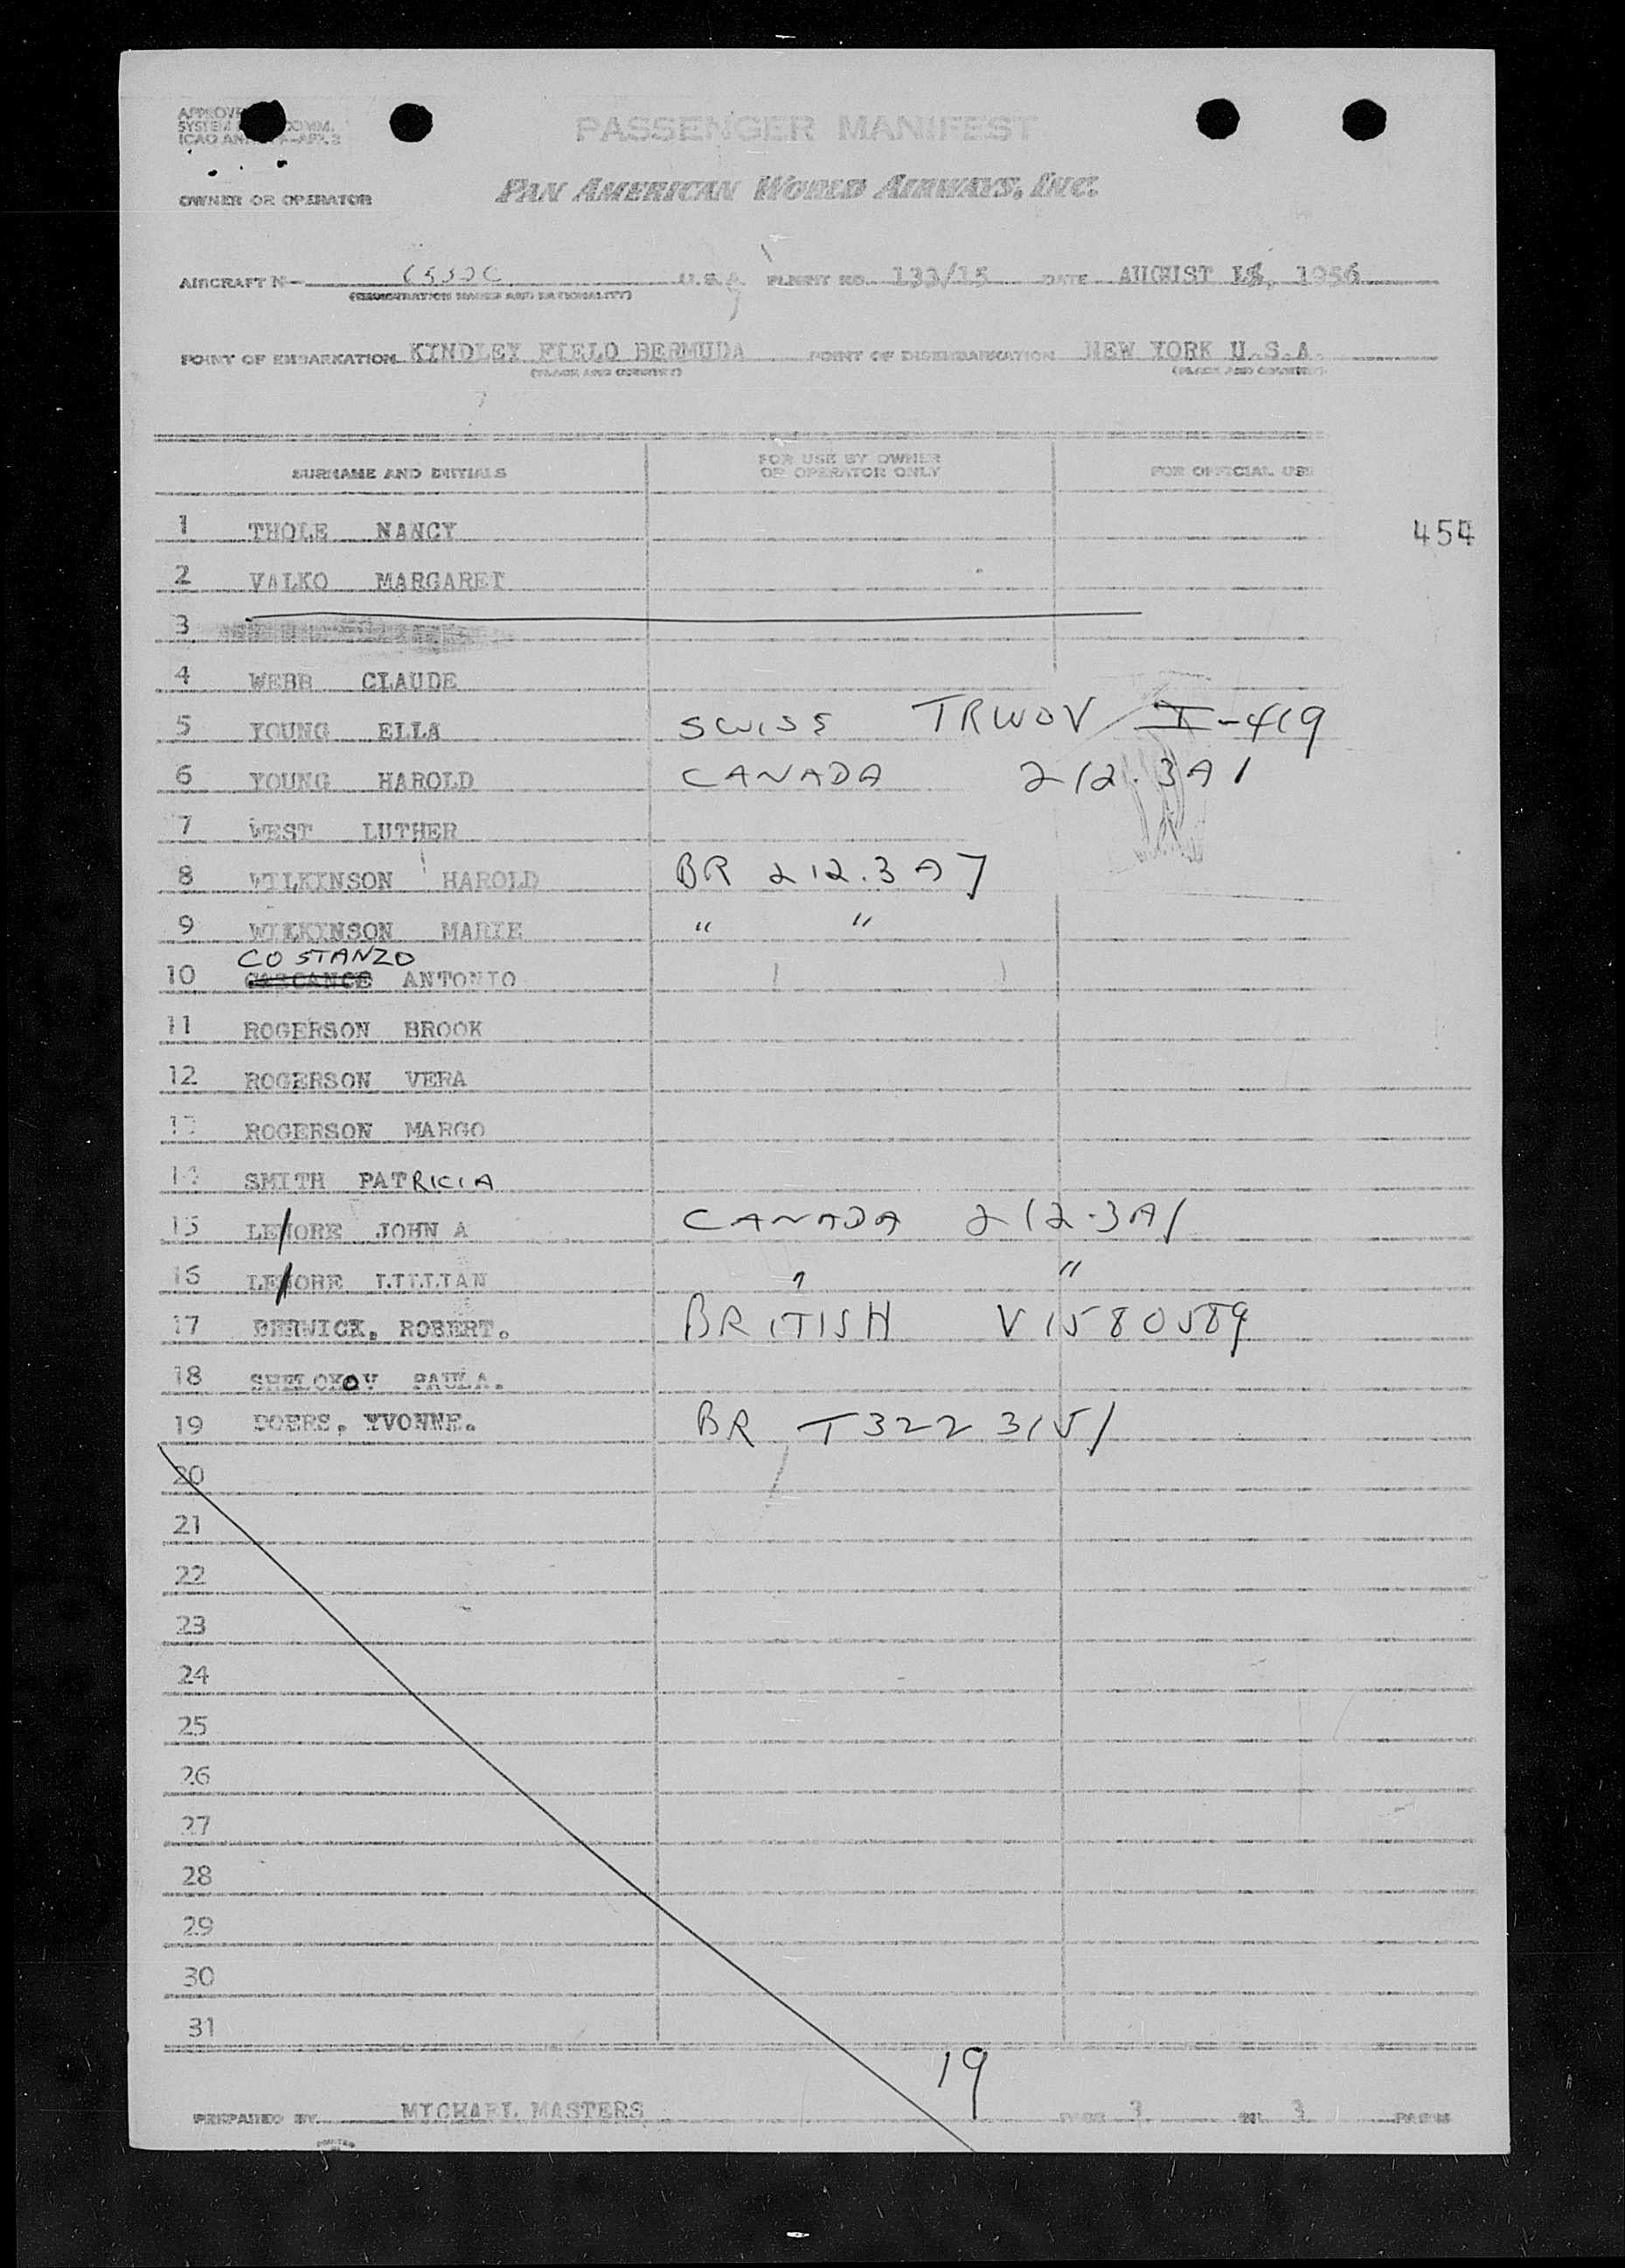 PASSENGER MANIFEST
OWNER OR OPERATOR PAN AMERICAN WORLD AIRWAYS, INC.
AIRCRAFT N- U.S.A. FLIGHT NO. 133/15 DATE AUGUST 1956
(REGISTRATION MARKS AND NATIONALITY)
POINT OF EMBARKATION KINDLEY FIELD BERMUDA POINT OF DISEMBARKATION NEW YORK U.S.A.
(PLACE AND COUNTRY) (PLACE AND COUNTRY)
SURNAME AND INITIALS FOR USE BY OWNER OR OPERATOR ONLY FOR OFFICIAL USE
1 THOLE NANCY 454
2 VALKO MARGARET
3
4 WEBB CLAUDE
5 YOUNG ELLA SWISS TRWOV I-419
6 YOUNG HAROLD CANADA 212.3A1
7 WEST LUTHER
8 WILKINSON HAROLD BR 212.3A7
9 WILKINSON MARIE " "
COSTANZO
10 ANTONIO
11 ROGERSON BROOK
12 ROGERSON VERA
13 ROGERSON MARGO
14 SMITH PATRICIA
15 JOHN A CANADA 212.3A1
16 LILLIAN " "
17 BERWICK, ROBERT. BRITISH V1580589
18 SHELOKOV PAULA.
19 YVONNE. BR T322315/
20
21
22
23
24
25
26
27
28
29
30
31
19
PREPARED BY MICHAEL MASTERS PAGE 3 OF 3 PAGES